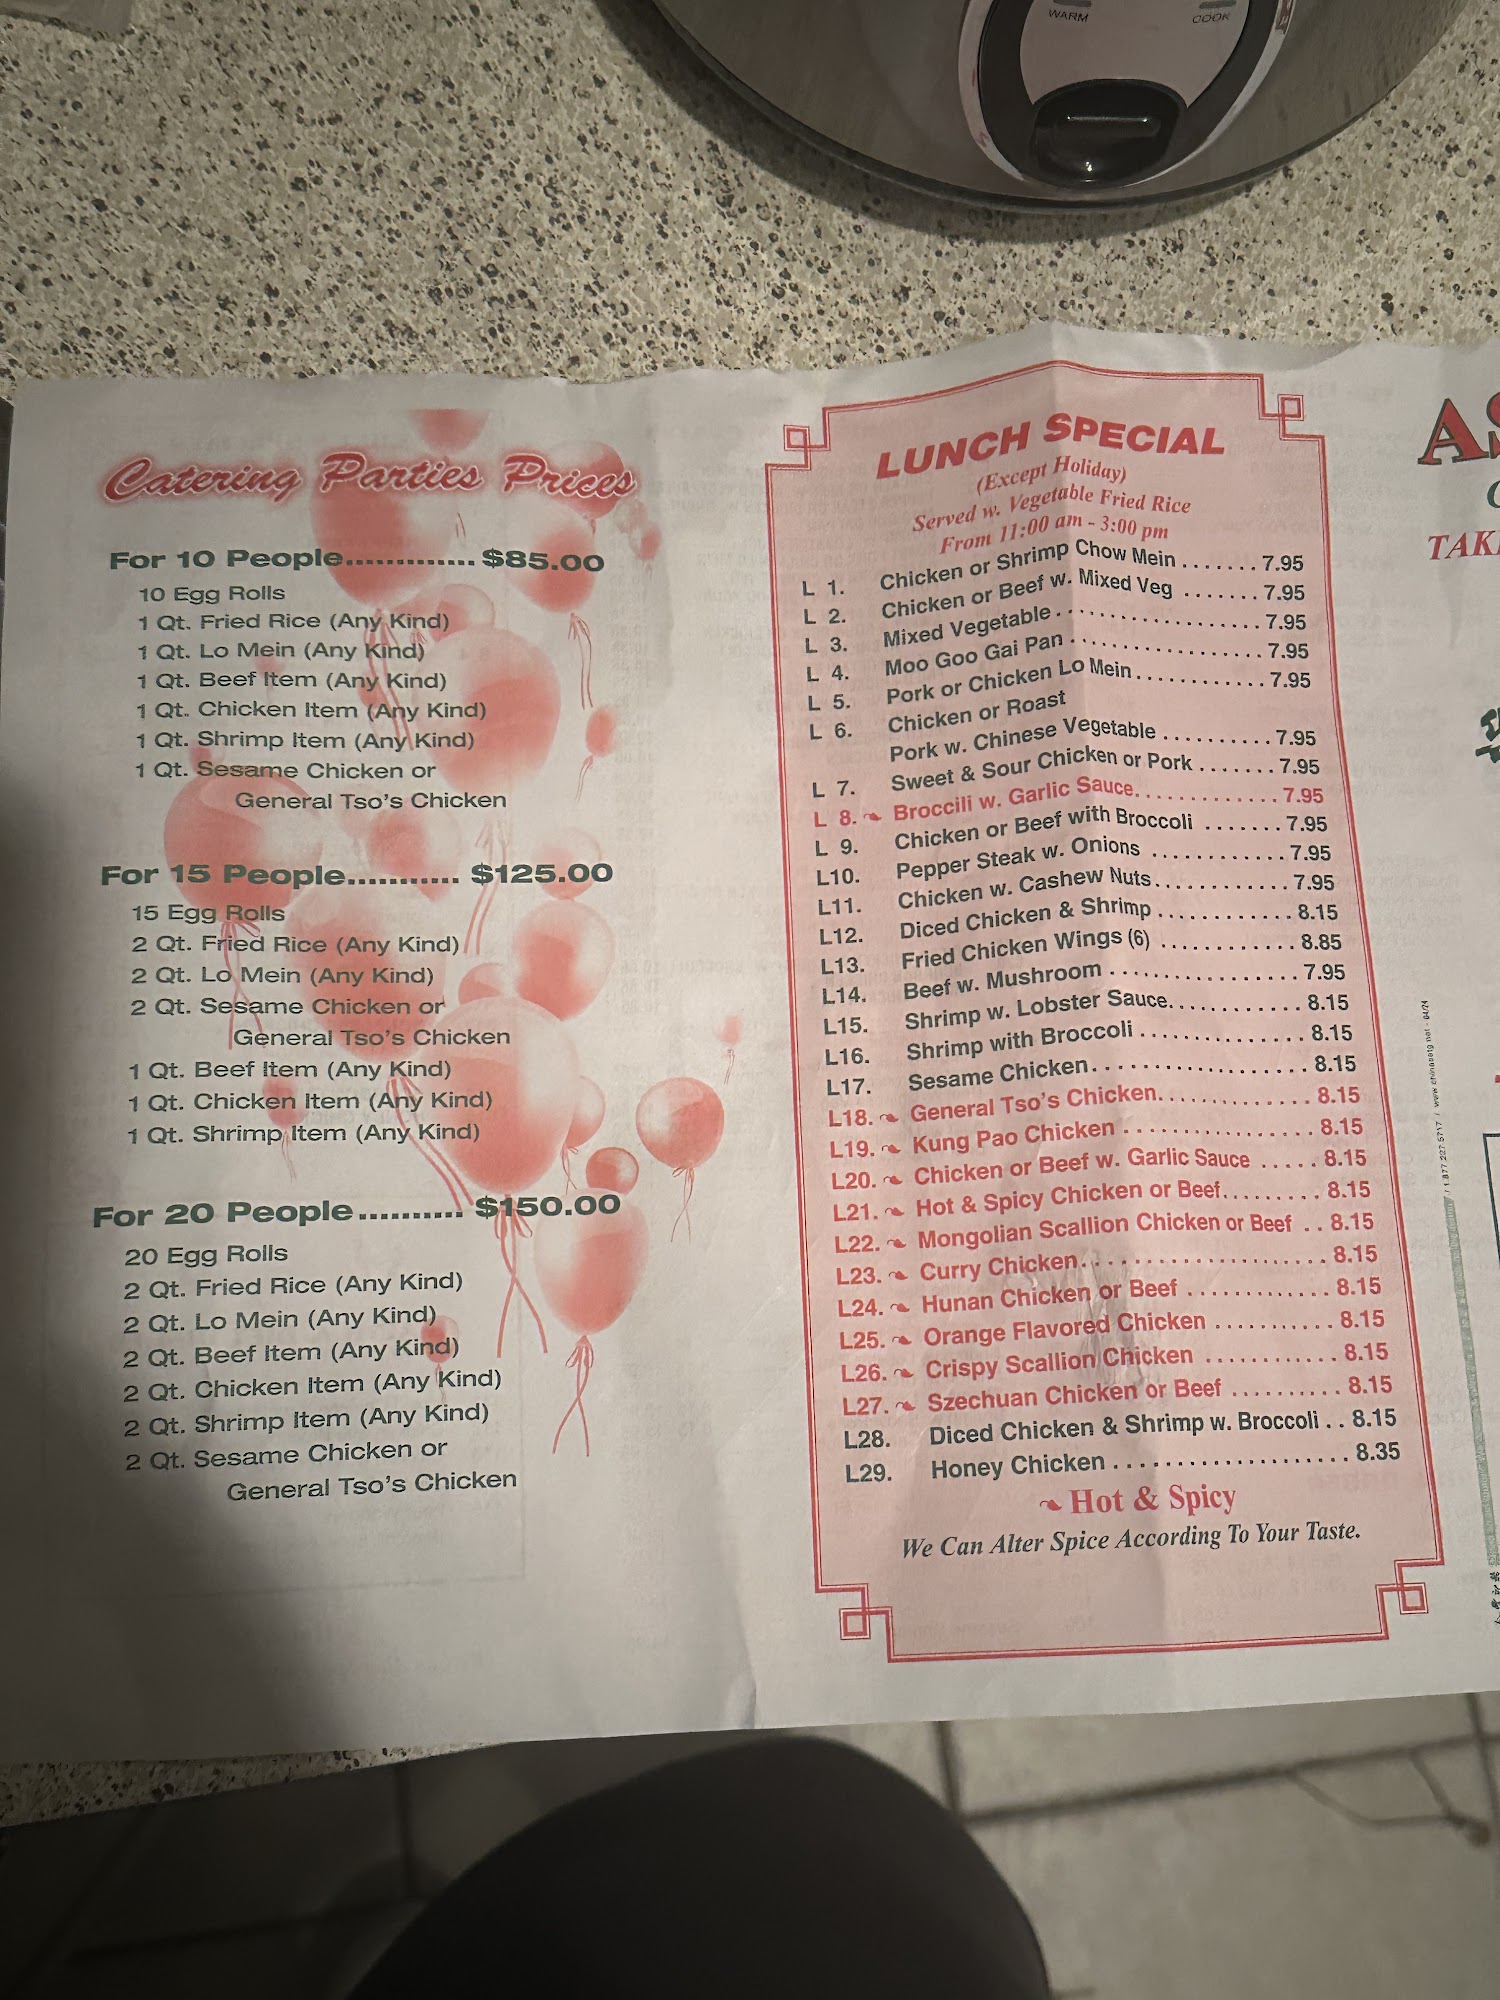 WARM
COOK
Catering Parties Prices
For 10 People............. $85.00
10 Egg Rolls
1 Qt. Fried Rice (Any Kind)
1 Qt. Lo Mein (Any Kind)
1 Qt. Beef Item (Any Kind)
1 Qt. Chicken Item (Any Kind)
1 Qt. Shrimp Item (Any Kind)
1 Qt. Sesame Chicken or
General Tso's Chicken
For 15 People........... $125.00
15 Egg Rolls
2 Qt. Fried Rice (Any Kind)
2 Qt. Lo Mein (Any Kind)
2 Qt. Sesame Chicken or
General Tso's Chicken
1 Qt. Beef Item (Any Kind)
1 Qt. Chicken Item (Any Kind)
1 Qt. Shrimp Item (Any Kind)
For 20 People.......... $150.00
20 Egg Rolls
2 Qt. Fried Rice (Any Kind)
2 Qt. Lo Mein (Any Kind)
2 Qt. Beef Item (Any Kind)
2 Qt. Chicken Item (Any Kind)
2 Qt. Shrimp Item (Any Kind)
2 Qt. Sesame Chicken or
General Tso's Chicken
LUNCH SPECIAL
(Except Holiday)
Served w. Vegetable Fried Rice
From 11:00 am - 3:00 pm
L 1. Chicken or Shrimp Chow Mein ....... 7.95
L 2. Chicken or Beef w. Mixed Veg ....... 7.95
L 3. Mixed Vegetable ................. 7.95
L 4. Moo Goo Gai Pan ................ 7.95
L 5. Pork or Chicken Lo Mein ............ 7.95
L 6. Chicken or Roast
Pork w. Chinese Vegetable .......... 7.95
L 7. Sweet & Sour Chicken or Pork ....... 7.95
L 8. Broccili w. Garlic Sauce ............. 7.95
L 9. Chicken or Beef with Broccoli ....... 7.95
L10. Pepper Steak w. Onions ............ 7.95
L11. Chicken w. Cashew Nuts ............ 7.95
L12. Diced Chicken & Shrimp ............ 8.15
L13. Fried Chicken Wings (6) ............ 8.85
L14. Beef w. Mushroom ................. 7.95
L15. Shrimp w. Lobster Sauce ............ 8.15
L16. Shrimp with Broccoli ............... 8.15
L17. Sesame Chicken ................... 8.15
L18. General Tso's Chicken .............. 8.15
L19. Kung Pao Chicken ................. 8.15
L20. Chicken or Beef w. Garlic Sauce ..... 8.15
L21. Hot & Spicy Chicken or Beef ......... 8.15
L22. Mongolian Scallion Chicken or Beef .. 8.15
L23. Curry Chicken ..................... 8.15
L24. Hunan Chicken or Beef ............ 8.15
L25. Orange Flavored Chicken ........... 8.15
L26. Crispy Scallion Chicken ............ 8.15
L27. Szechuan Chicken or Beef .......... 8.15
L28. Diced Chicken & Shrimp w. Broccoli .. 8.15
L29. Honey Chicken .................... 8.35
Hot & Spicy
We Can Alter Spice According To Your Taste.